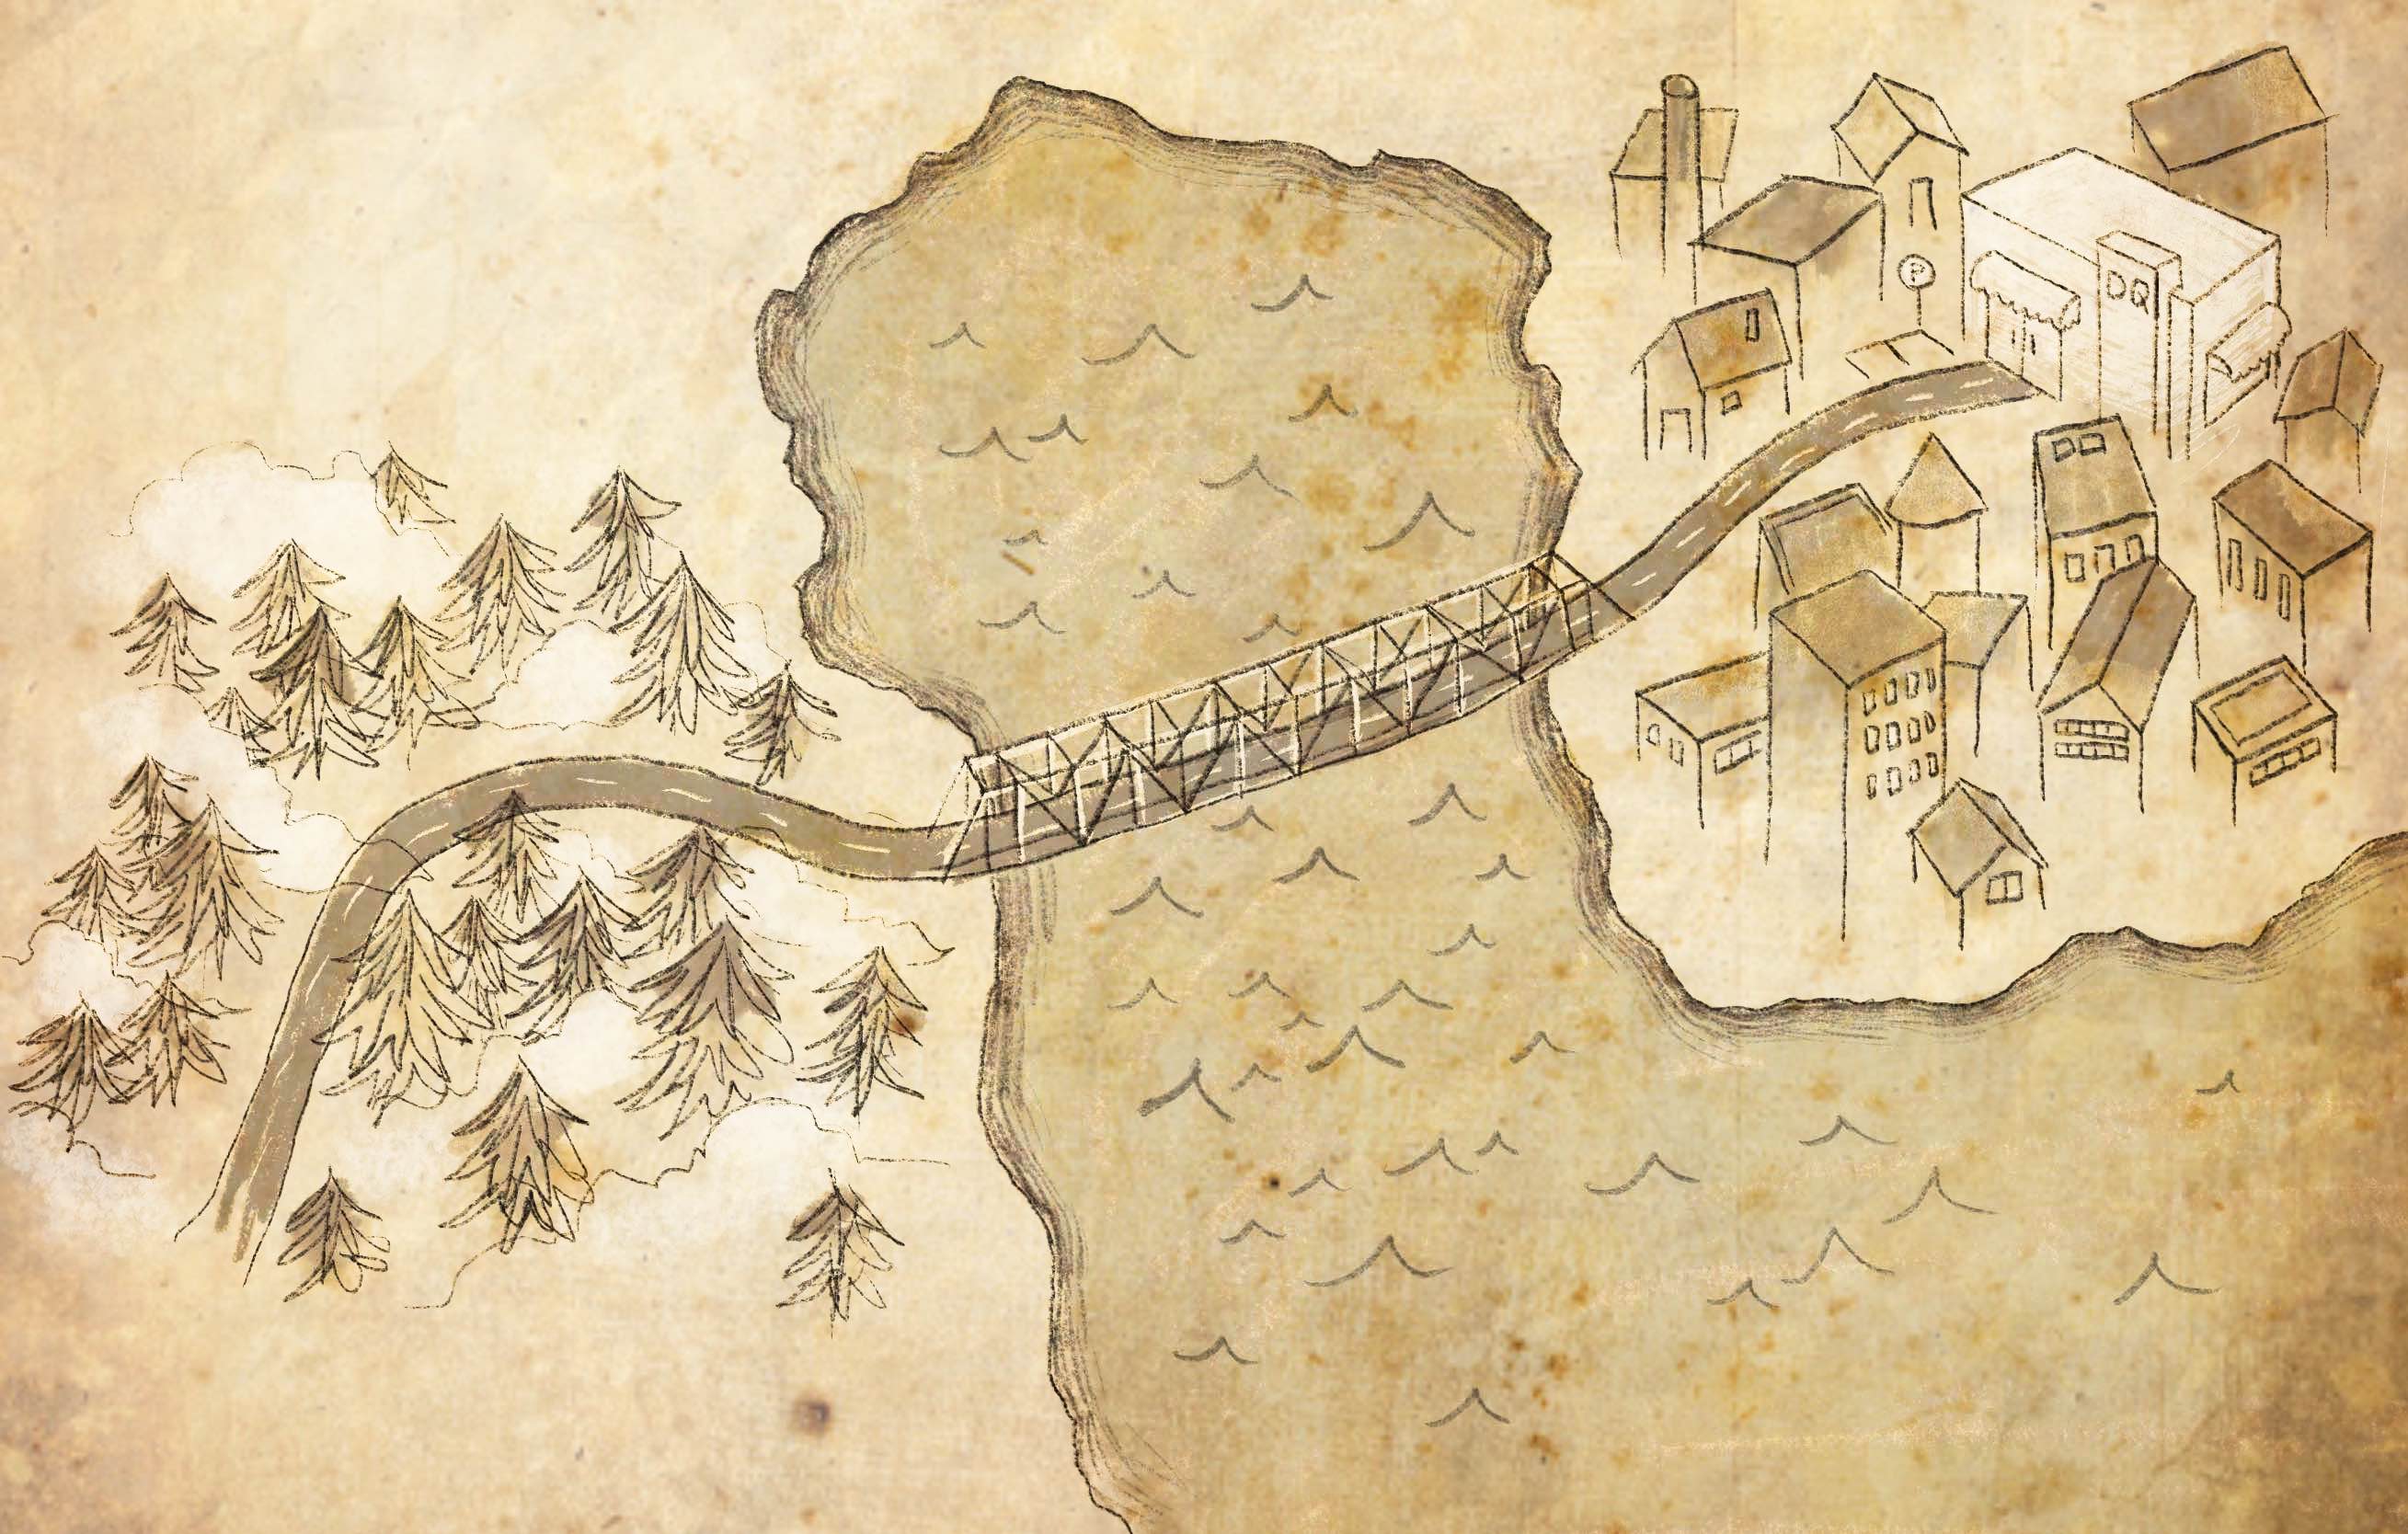 P
DQ